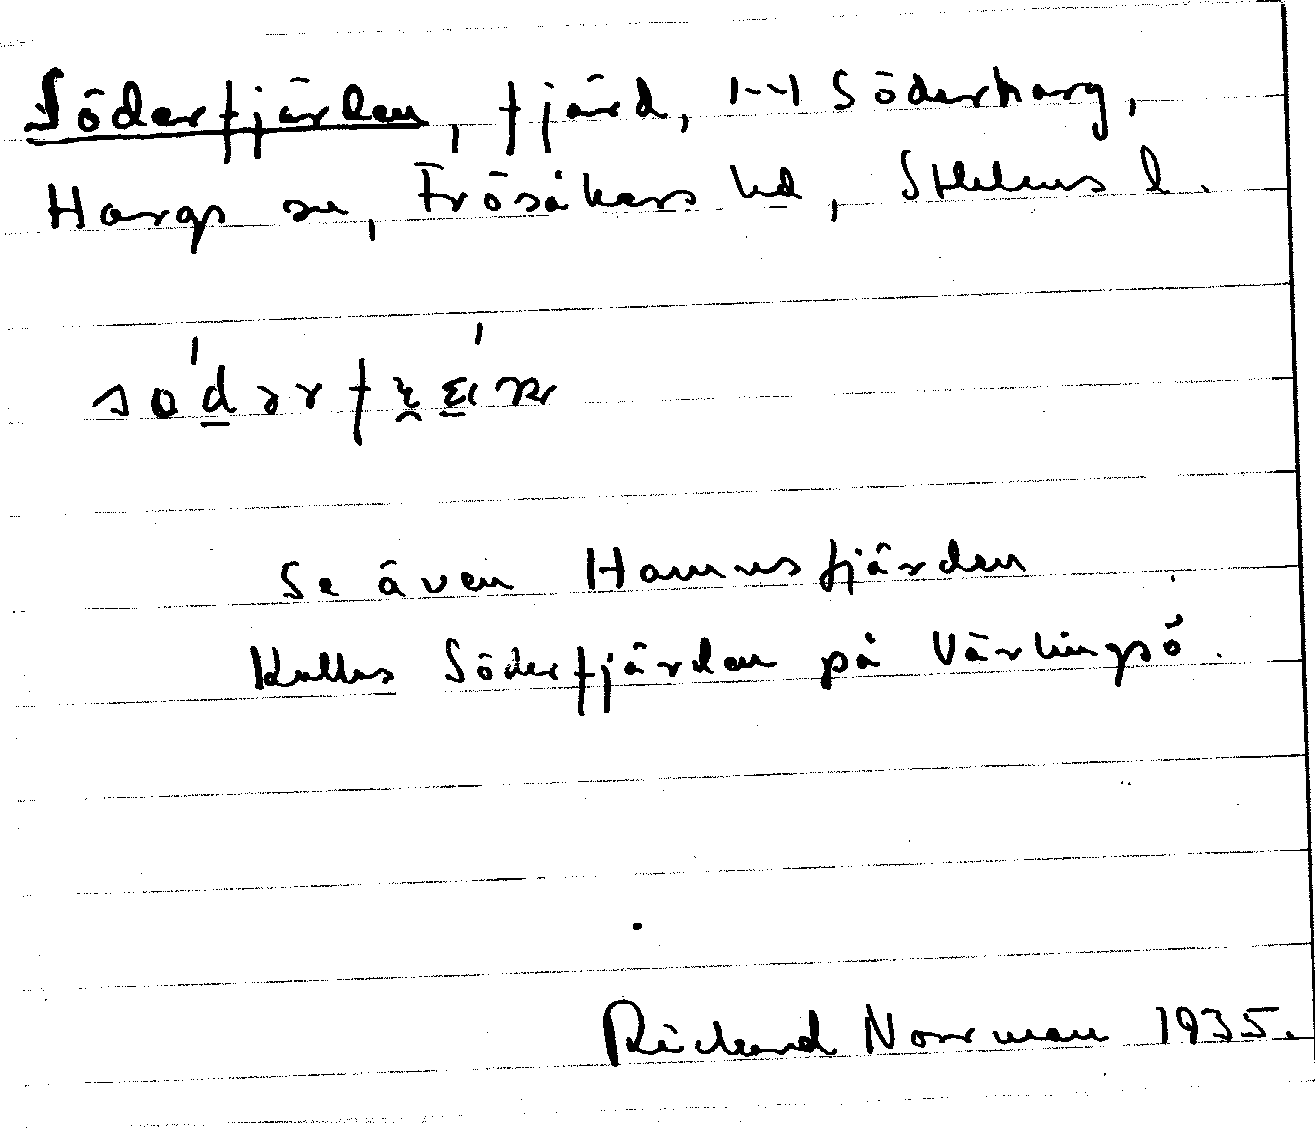 Söderfjärden, fjärd, Söderharg,
Hargs sn, Frösåkers hd, Sthlms l.
Se även Hamnsfjärden
Kallas Söderfjärden på Värlingsö.
Rickard Norrman 1935.